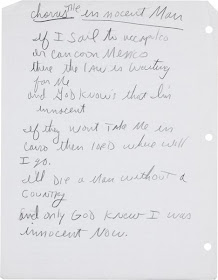 chorus The innocent Man
if I sail to accapulco
or cancoon Mexico
there the law is waiting
for Me
and God Know's that I'm
innocent
if they wont Take Me in
cairo then lORD where will
I go.
I'll Die a Man without a
COUNTRY
and only GOD Knew I was
innocent Now.